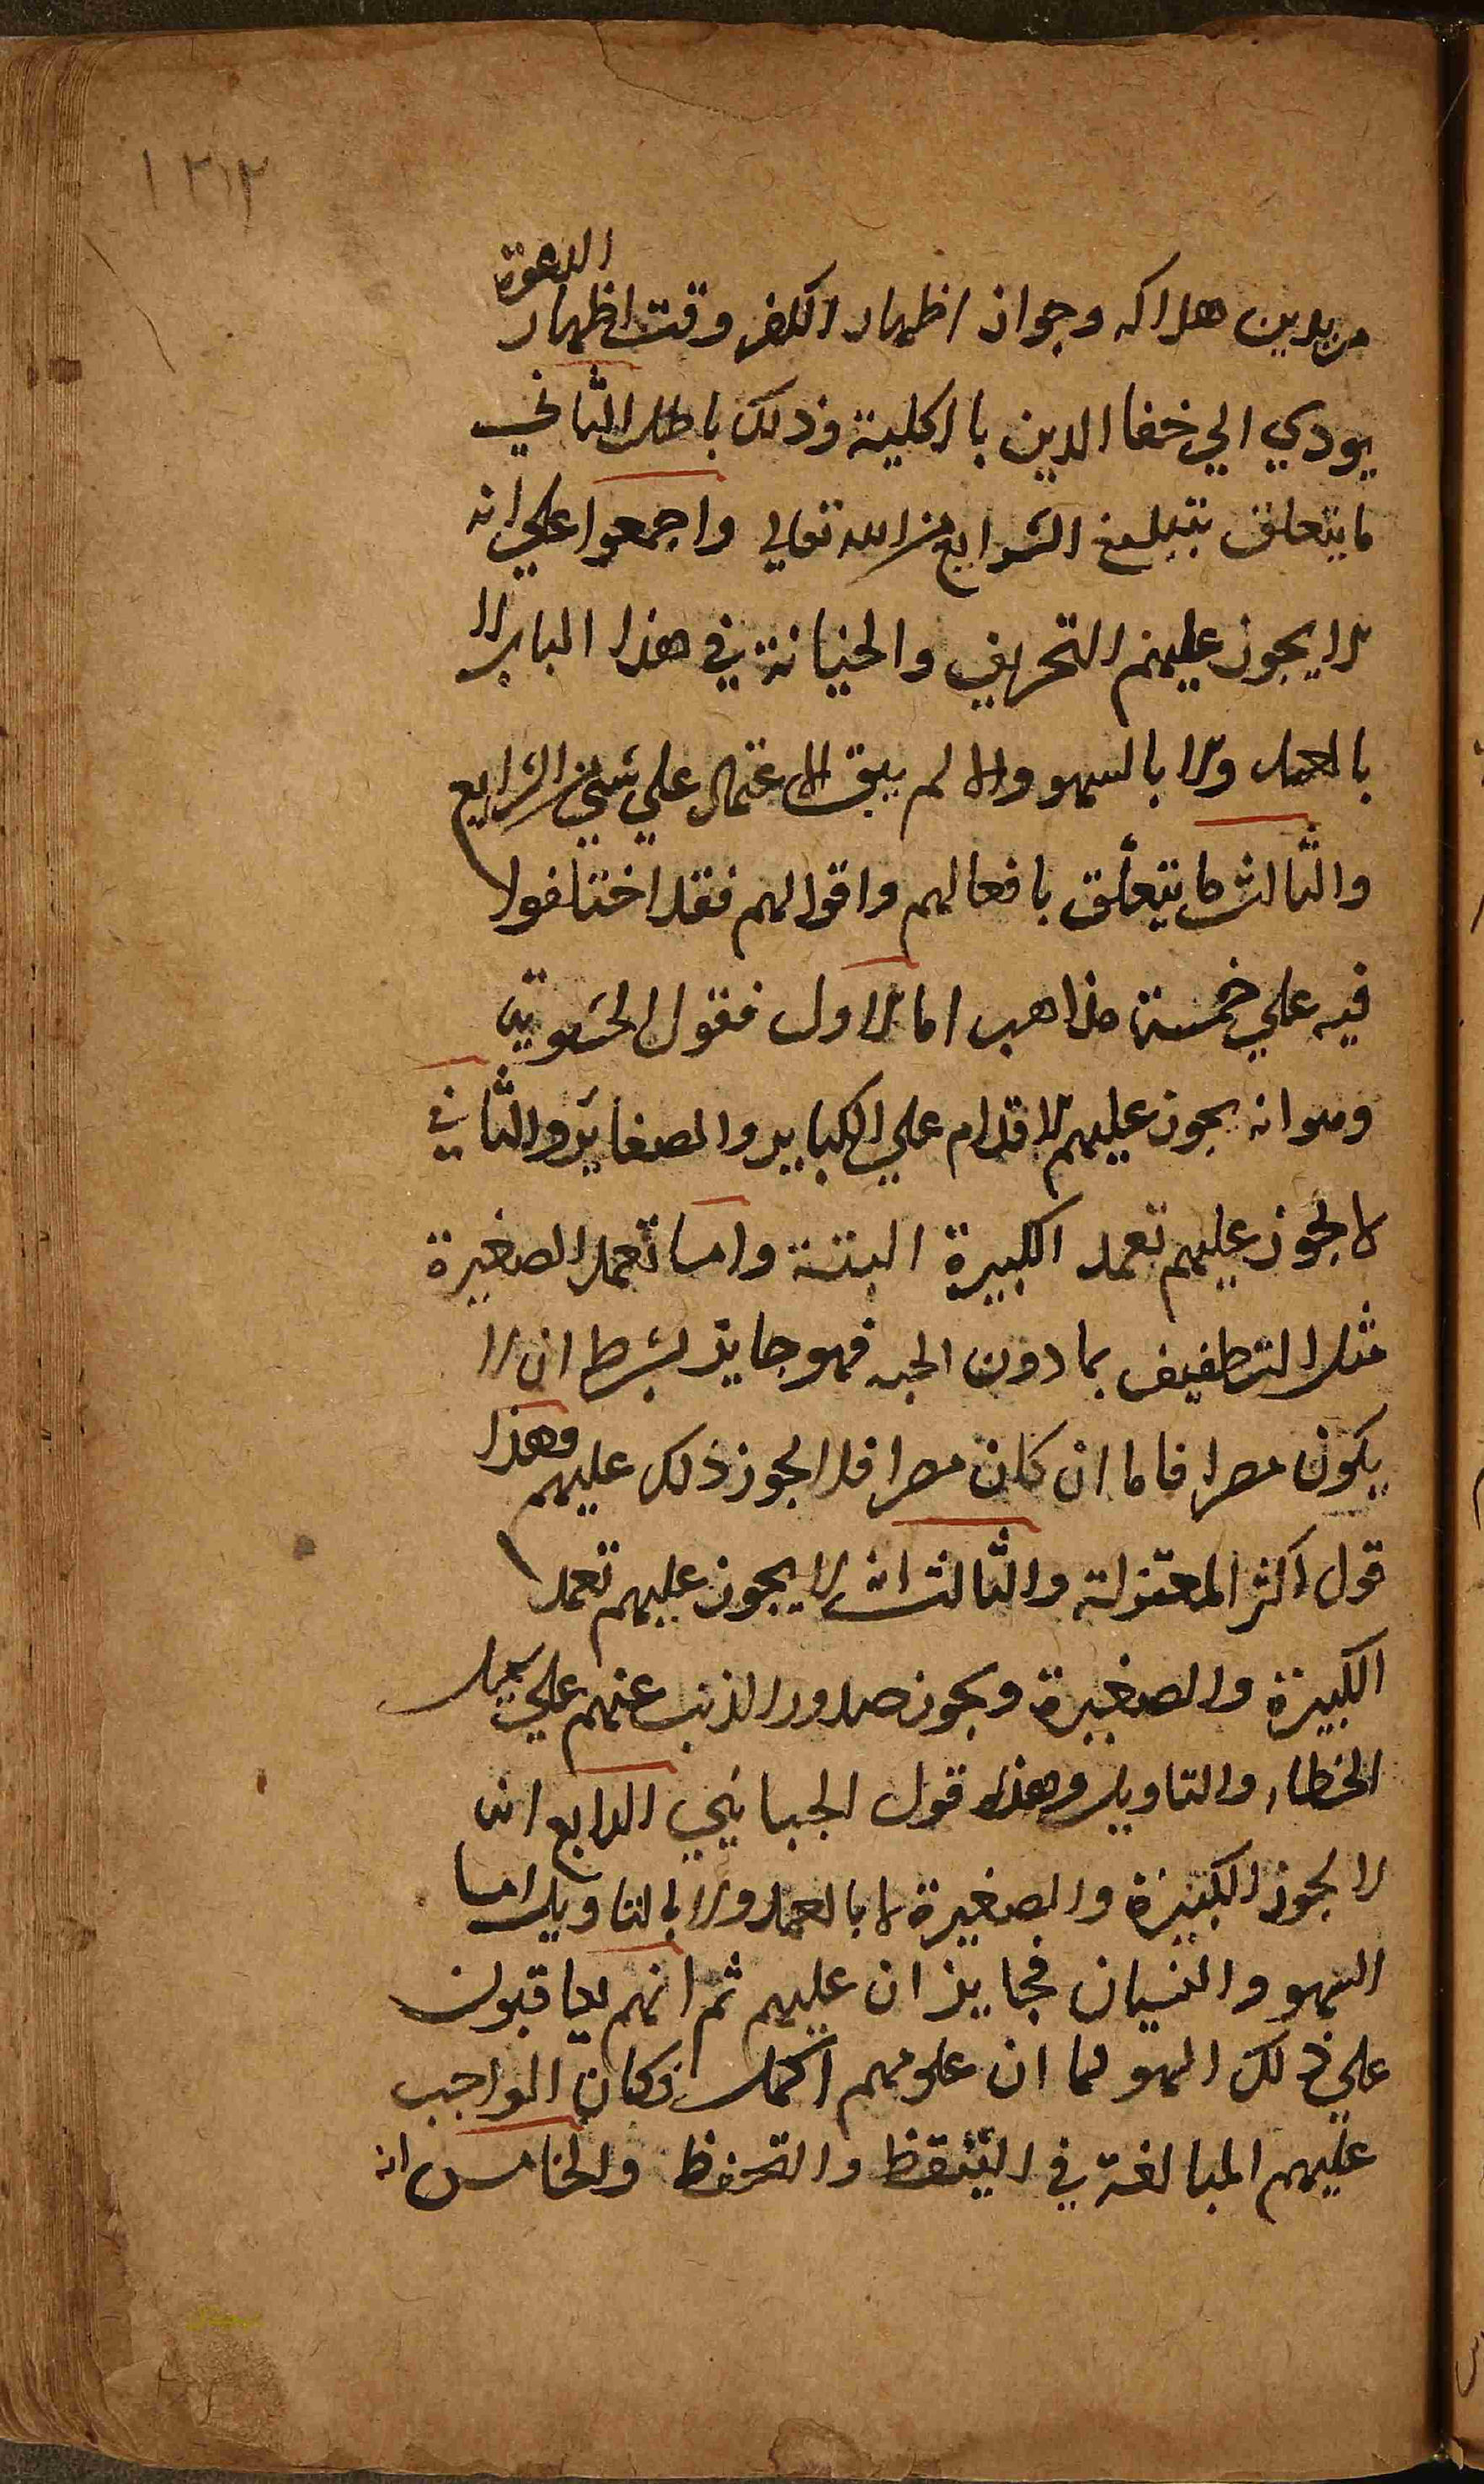 ١٢١٢
مريدين هلاكه وجواز اظهار الكفر وقت اظهار الدعوة
يودي الي خفا الدين بالكلية وذلك باطل الثاني
ما يتعلق بتبليغ الشرايع من الله تعالي واجمعوا علي انه
لا يجوز عليهم التحريف والخيانة في هذا الباب لا
بالعمد ولا بالسهو والا لم يبق الاعتماد علي شي من الشرايع
والثالث ما يتعلق بافعالهم واقوالهم فقد اختلفوا
فيه علي خمسة مذاهب اما الاول فقول الحشوية
وهو انه يجوز عليهم الاقدام علي الكباير والصغائر والثاني
لا يجوز عليهم تعمد الكبيرة البتة واما تعمد الصغيرة
مثل التطفيف بما دون الحبه فهو جايز بشرط ان لا
يكون مصرا فاما ان كان مصرا فلا يجوز ذلك عليهم وهذا
قول اكثر المعتزلة والثالث انه لا يجوز عليهم تعمد
الكبيرة والصغيرة ويجوز صدور الذنب عنهم علي سبيل
الخطاء والتاويل وهذا قول الجبائي الرابع انه
لا يجوز الكبيرة والصغيرة لا بالعمد ولا بالتاويل اما
السهو والنسيان فجايزان عليهم ثم انهم يعاقبون
علي ذلك السهو لما ان علومهم اكمل فكان الواجب
عليهم المبالغة في التيقظ والتحفظ والخامس انه